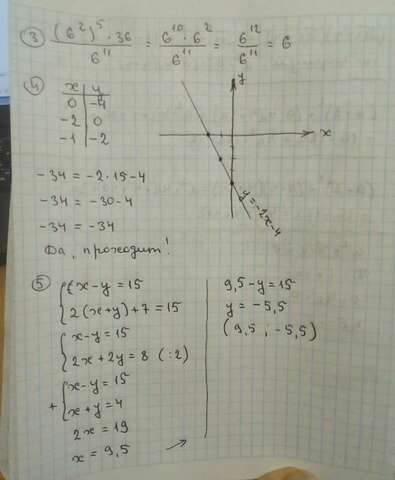 ③ (6²)⁵ · 36 / 6¹¹ = 6¹⁰ · 6² / 6¹¹ = 6¹² / 6¹¹ = 6
④
x | y
0 | -4
-2 | 0
-1 | -2
y
x
y=-2x-4
-34 = -2·15-4
-34 = -30-4
-34 = -34
Да, проходит!
⑤ { x-y = 15
2(x+y)+7 = 15
{ x-y = 15
2x+2y = 8 (:2)
+ { x-y = 15
x+y = 4
2x = 19
x = 9,5 →
9,5-y = 15
y = -5,5
(9,5 ; -5,5)